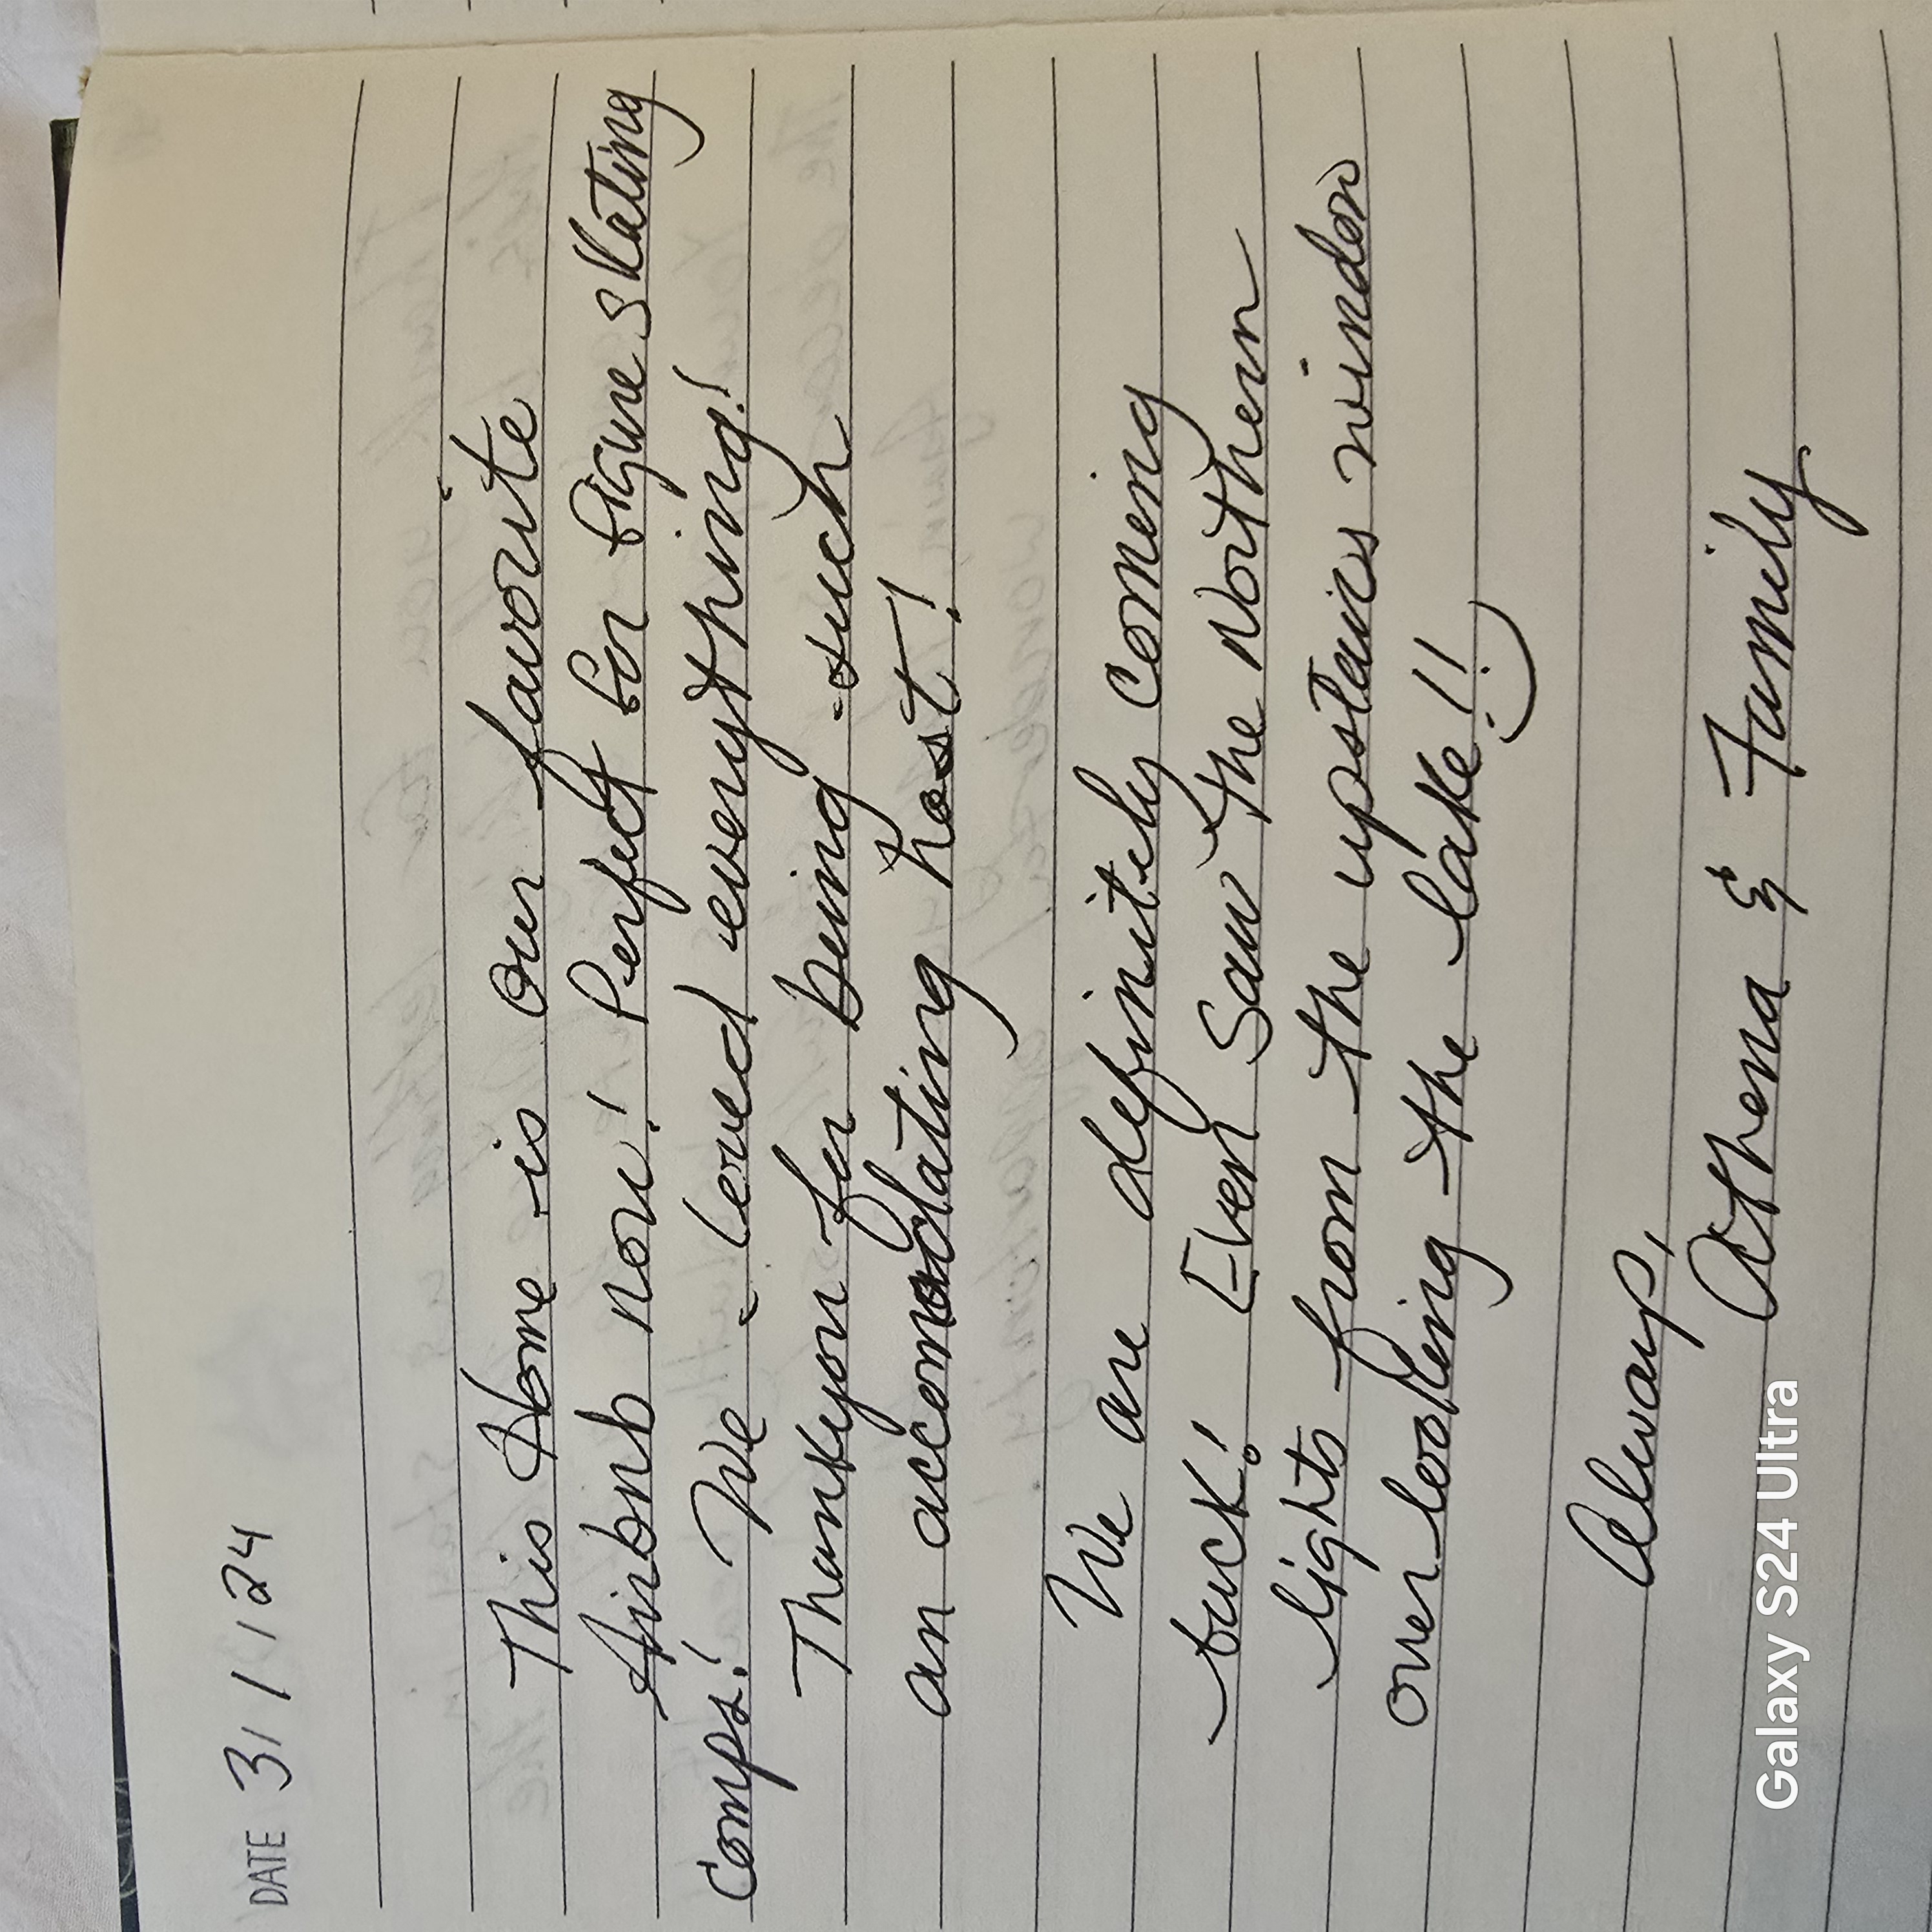 DATE 3 / 1 / 24
This Home is our favorite
Airbnb now! Perfect for figure skating
comps! We loved everything!
Thankyou for being such
an accomodating host!
We are definitely coming
back! Even Saw the Northern
lights from the upstairs window
over looking the lake!! :)
Always,
Athena & Family
Galaxy S24 Ultra